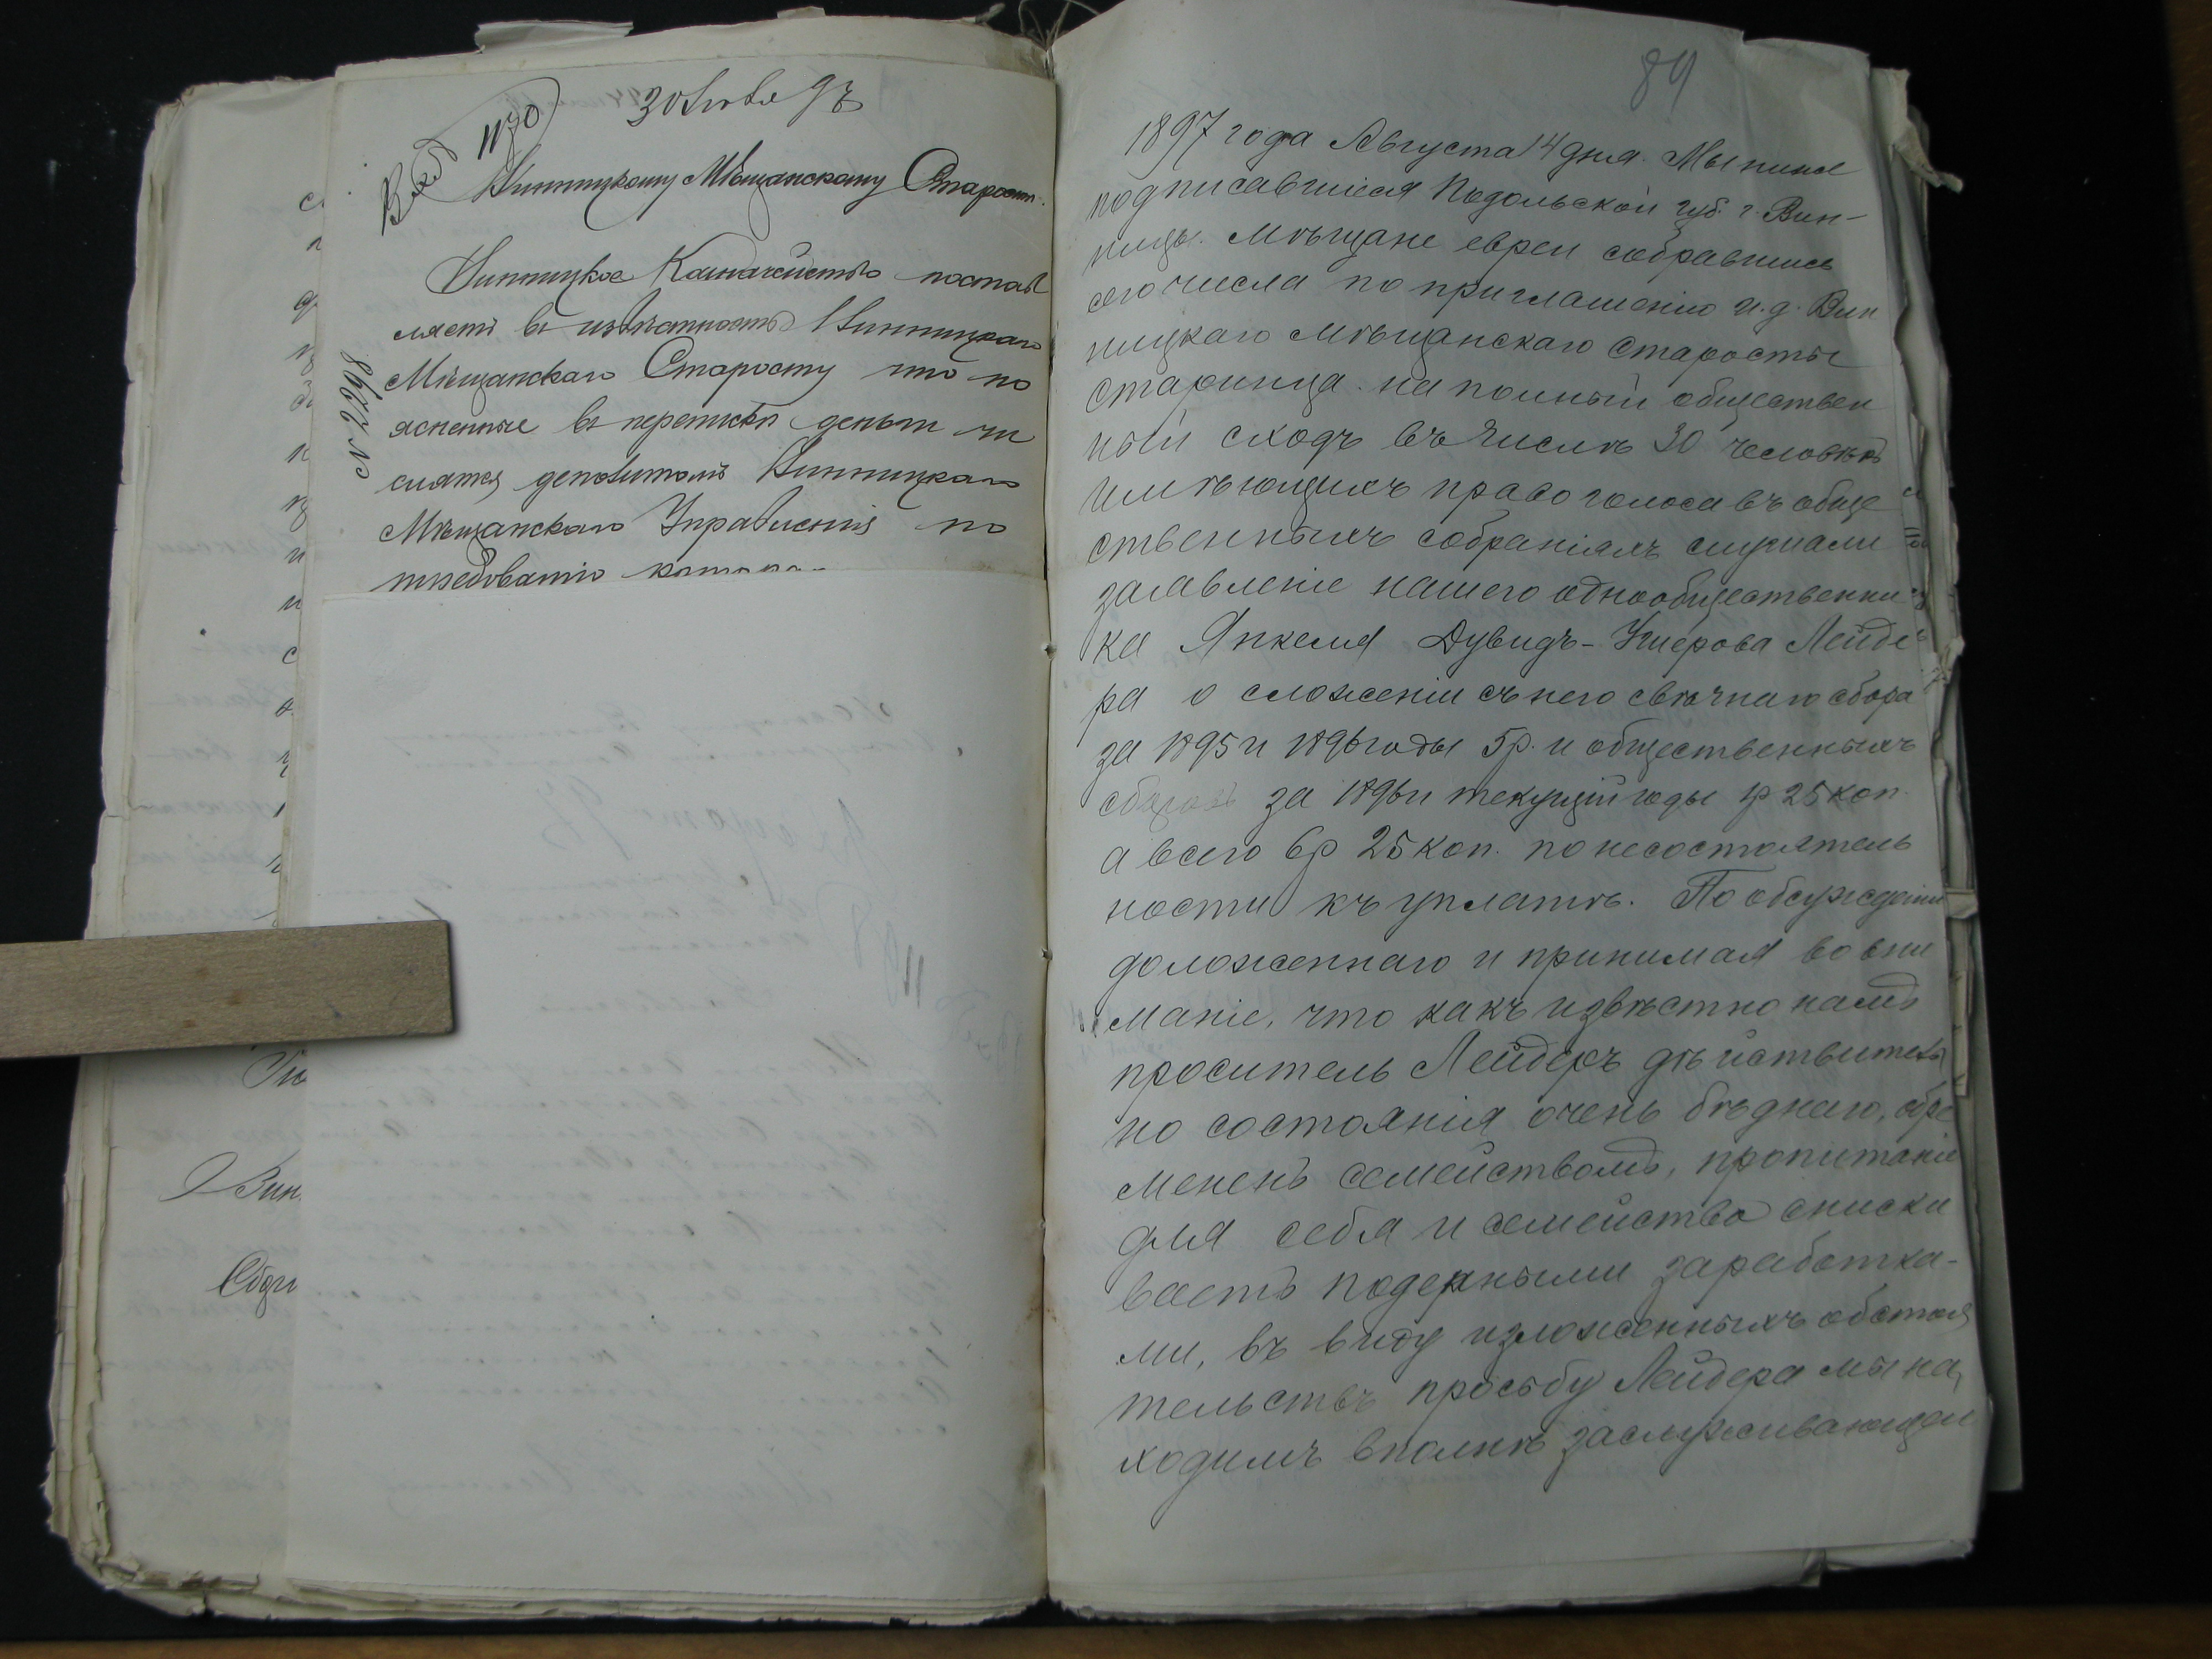 30 Июля 97
Вход 1170
Винницкому Мѣщанскому Старостѣ.
№ 2298
Винницкое Казначейство постав
ляетъ въ извѣстность Винницкаго
Мѣщанскаго Старосту что по
ясненные въ перепискѣ деньги чи
слятся депозитомъ Винницкаго
Мѣщанскаго Управленія по
требованію
89
1897 года Августа 14 дня. Мы ниже
подписавшіеся Подольской губ. г. Вин-
ницы. мѣщане евреи собравшись
сего числа по приглашенію и.д. Вин
ницкаго мѣщанскаго Старосты
Старинца. на полный обществен
ный сходъ въ числѣ 30 человѣкъ
имѣющихъ право голоса въ обще
ственныхъ собраніяхъ слушали
заявленіе нашего однообщественни
ка Янкеля Дувидъ-Ушерова Лейде
ра о сложеніи съ него свѣчнаго сбора
за 1895 и 1896 годы 5р. и общественныхъ
сборовъ за 1896 и текущій годы 1р 25 коп.
а всего 6р 25 коп. по несостоятель
ности къ уплатѣ. По обсужденіи
доложеннаго и принимая во вни
маніе, что какъ извѣстно намъ
проситель Лейдеръ дѣйствитель
но состоянія очень бѣднаго, обре
мененъ семействомъ, пропитаніе
для себя и семейства сниски
ваетъ поденными заработка-
ми, въ виду изложенныхъ обстоя
тельствъ просьбу Лейдера мы на
ходимъ вполнѣ заслуживающей